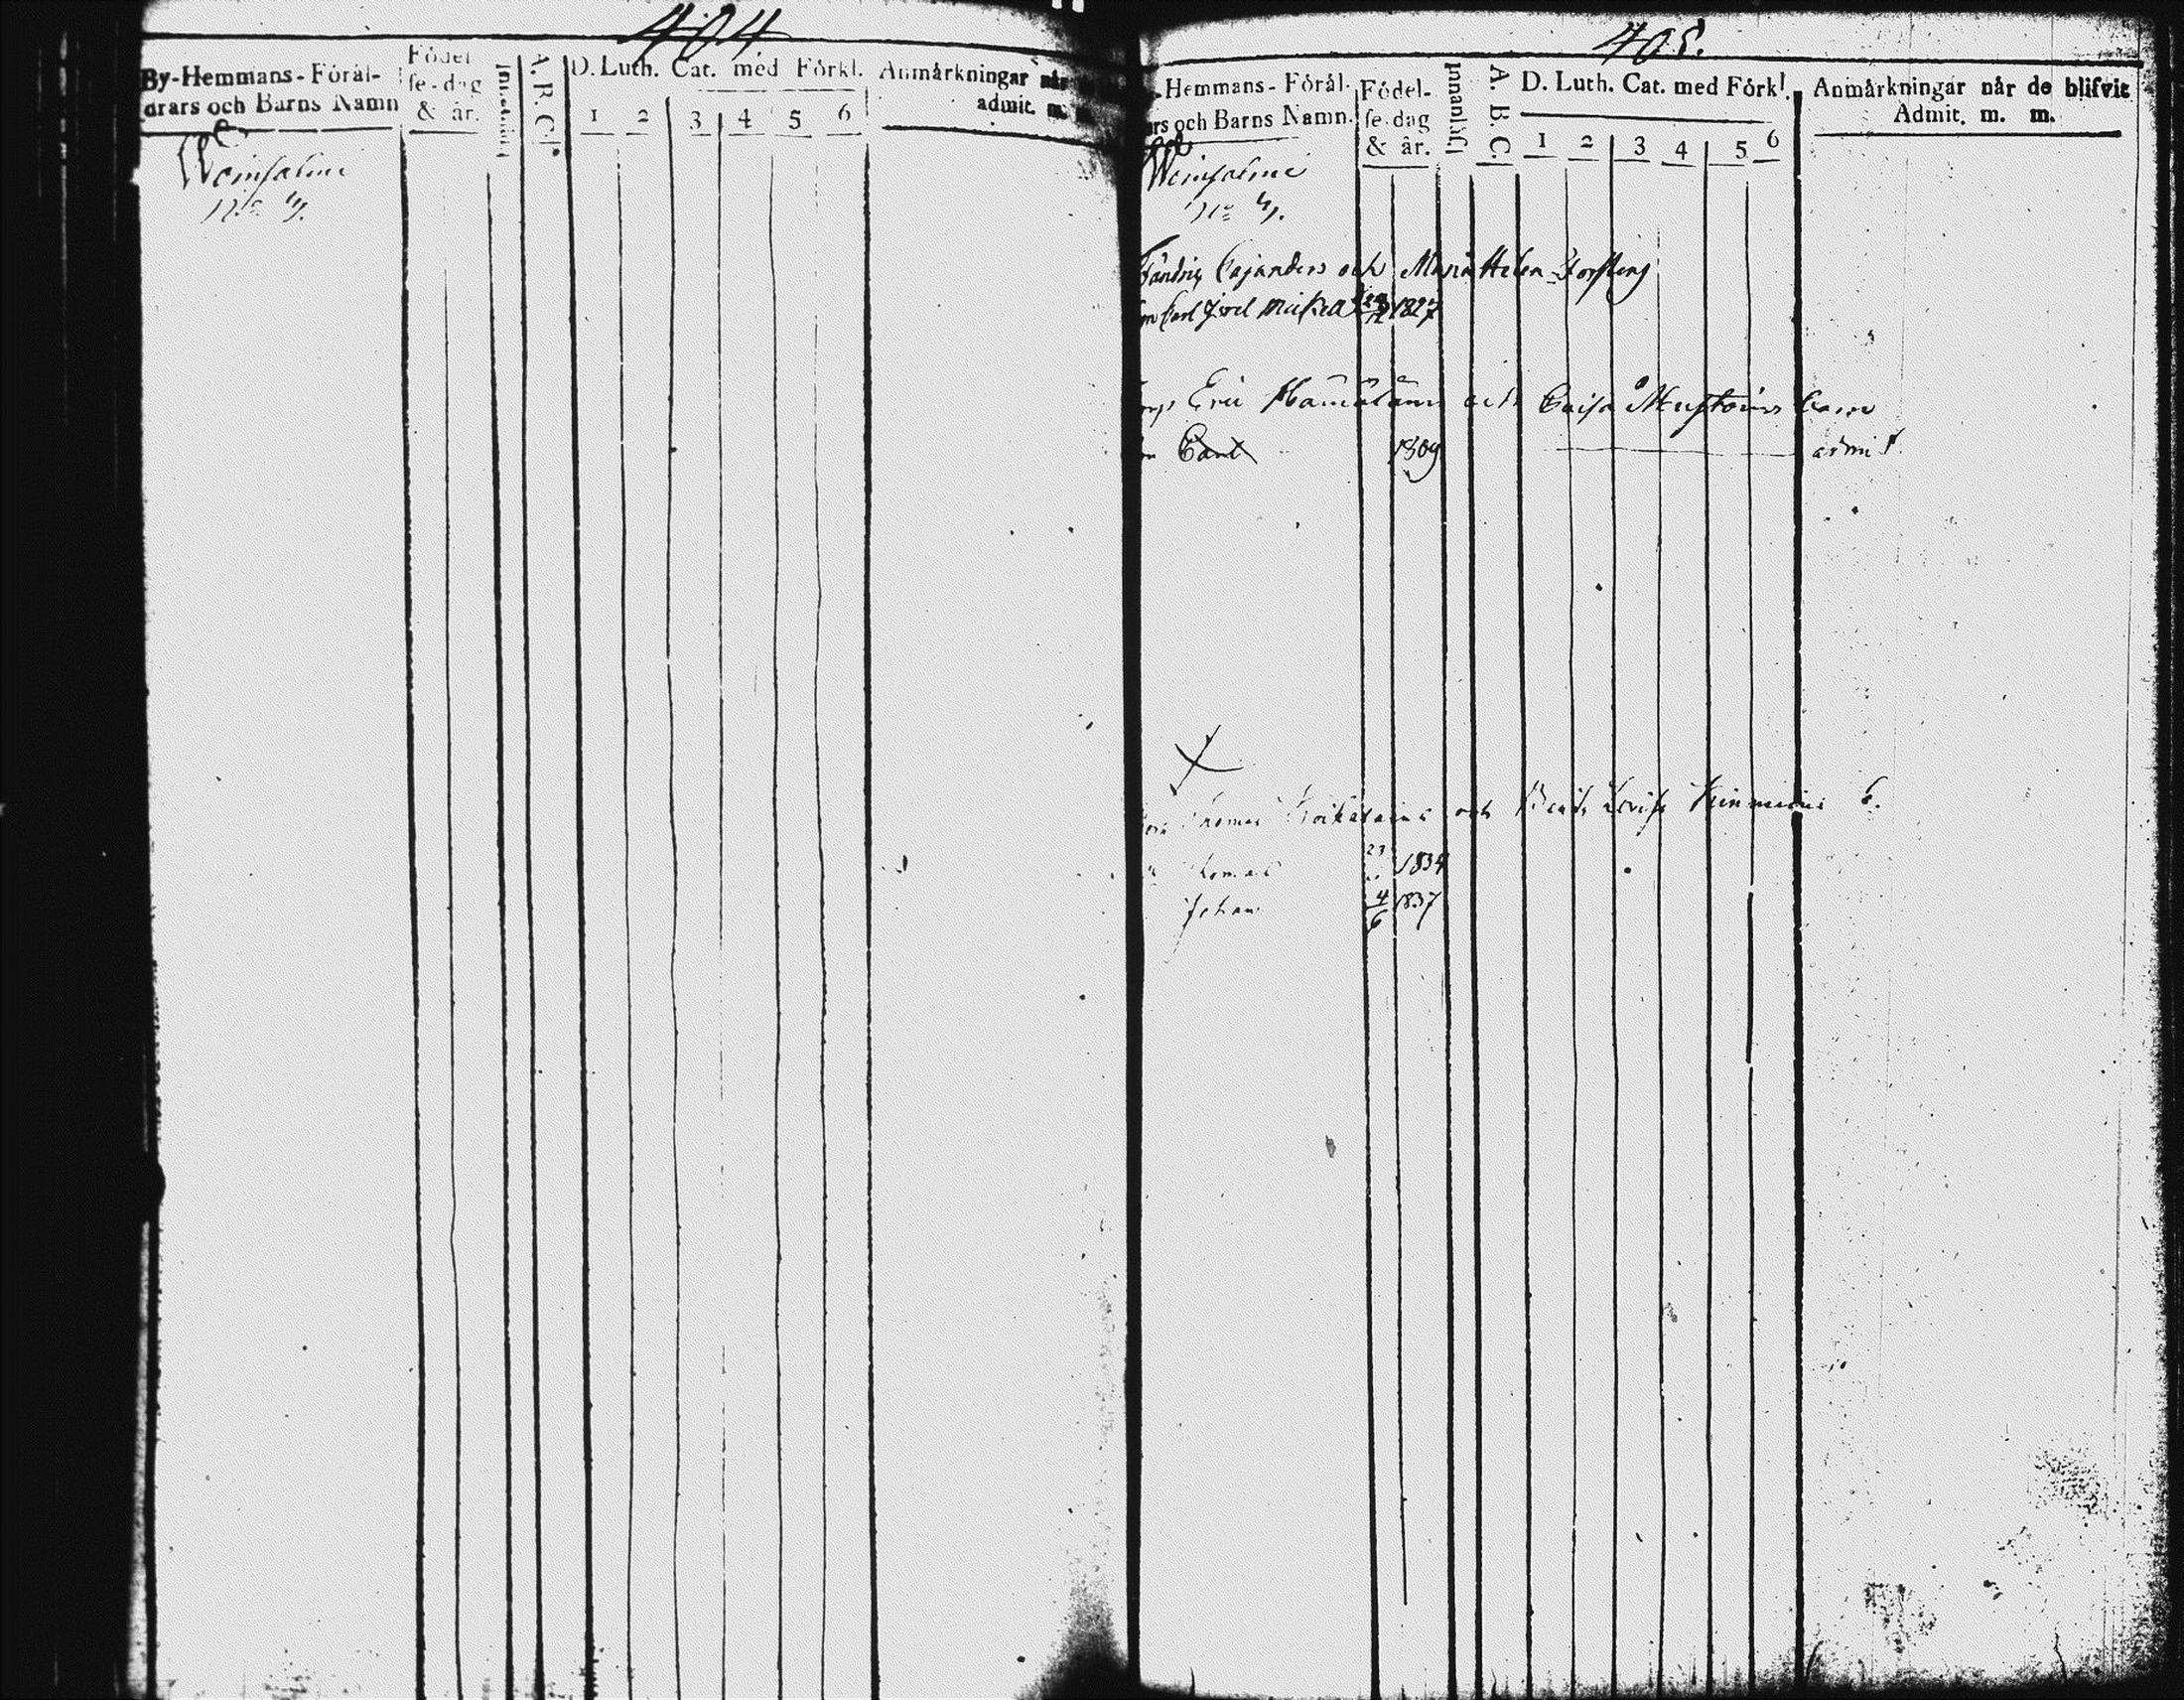 404
By-Hemmans-Föräl-
drars och Barns Namn
Födel
se-dag
& år.
A. B. C.
D. Luth. Cat. med Förkl.
1 2 3 4 5 6
Anmärkningar när
admit. m.
Weinsalmi
No 4.
405.
Hemmans-Föräl-
rs och Barns Namn.
Födel-
se-dag
& år.
Innanläs.
A. B. C.
D. Luth. Cat. med Förkl.
1 2 3 4 5 6
Anmärkningar när de blifvit
Admit. m. m.
Weinsalmi
No 4.
Fändrig Cajanders och Maria Helen Forsberg
Carl 1827
Eric och Caisa Barn
1809 admit.
Thomas och
Thomas 23 1834
Johan 4/6 1837